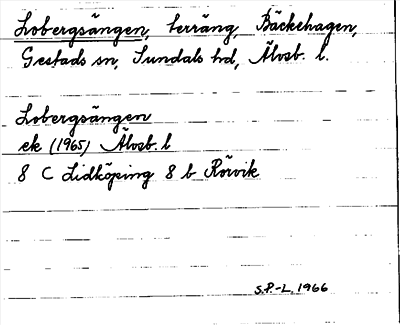 Lobergsängen, terräng, Bäckehagen,
Gestads sn, Sundals hd, Älvsb. l.
Lobergsängen
ek (1965) Älvsb. l
8 C Lidköping 8 b Rörvik
S.P.-L. 1966